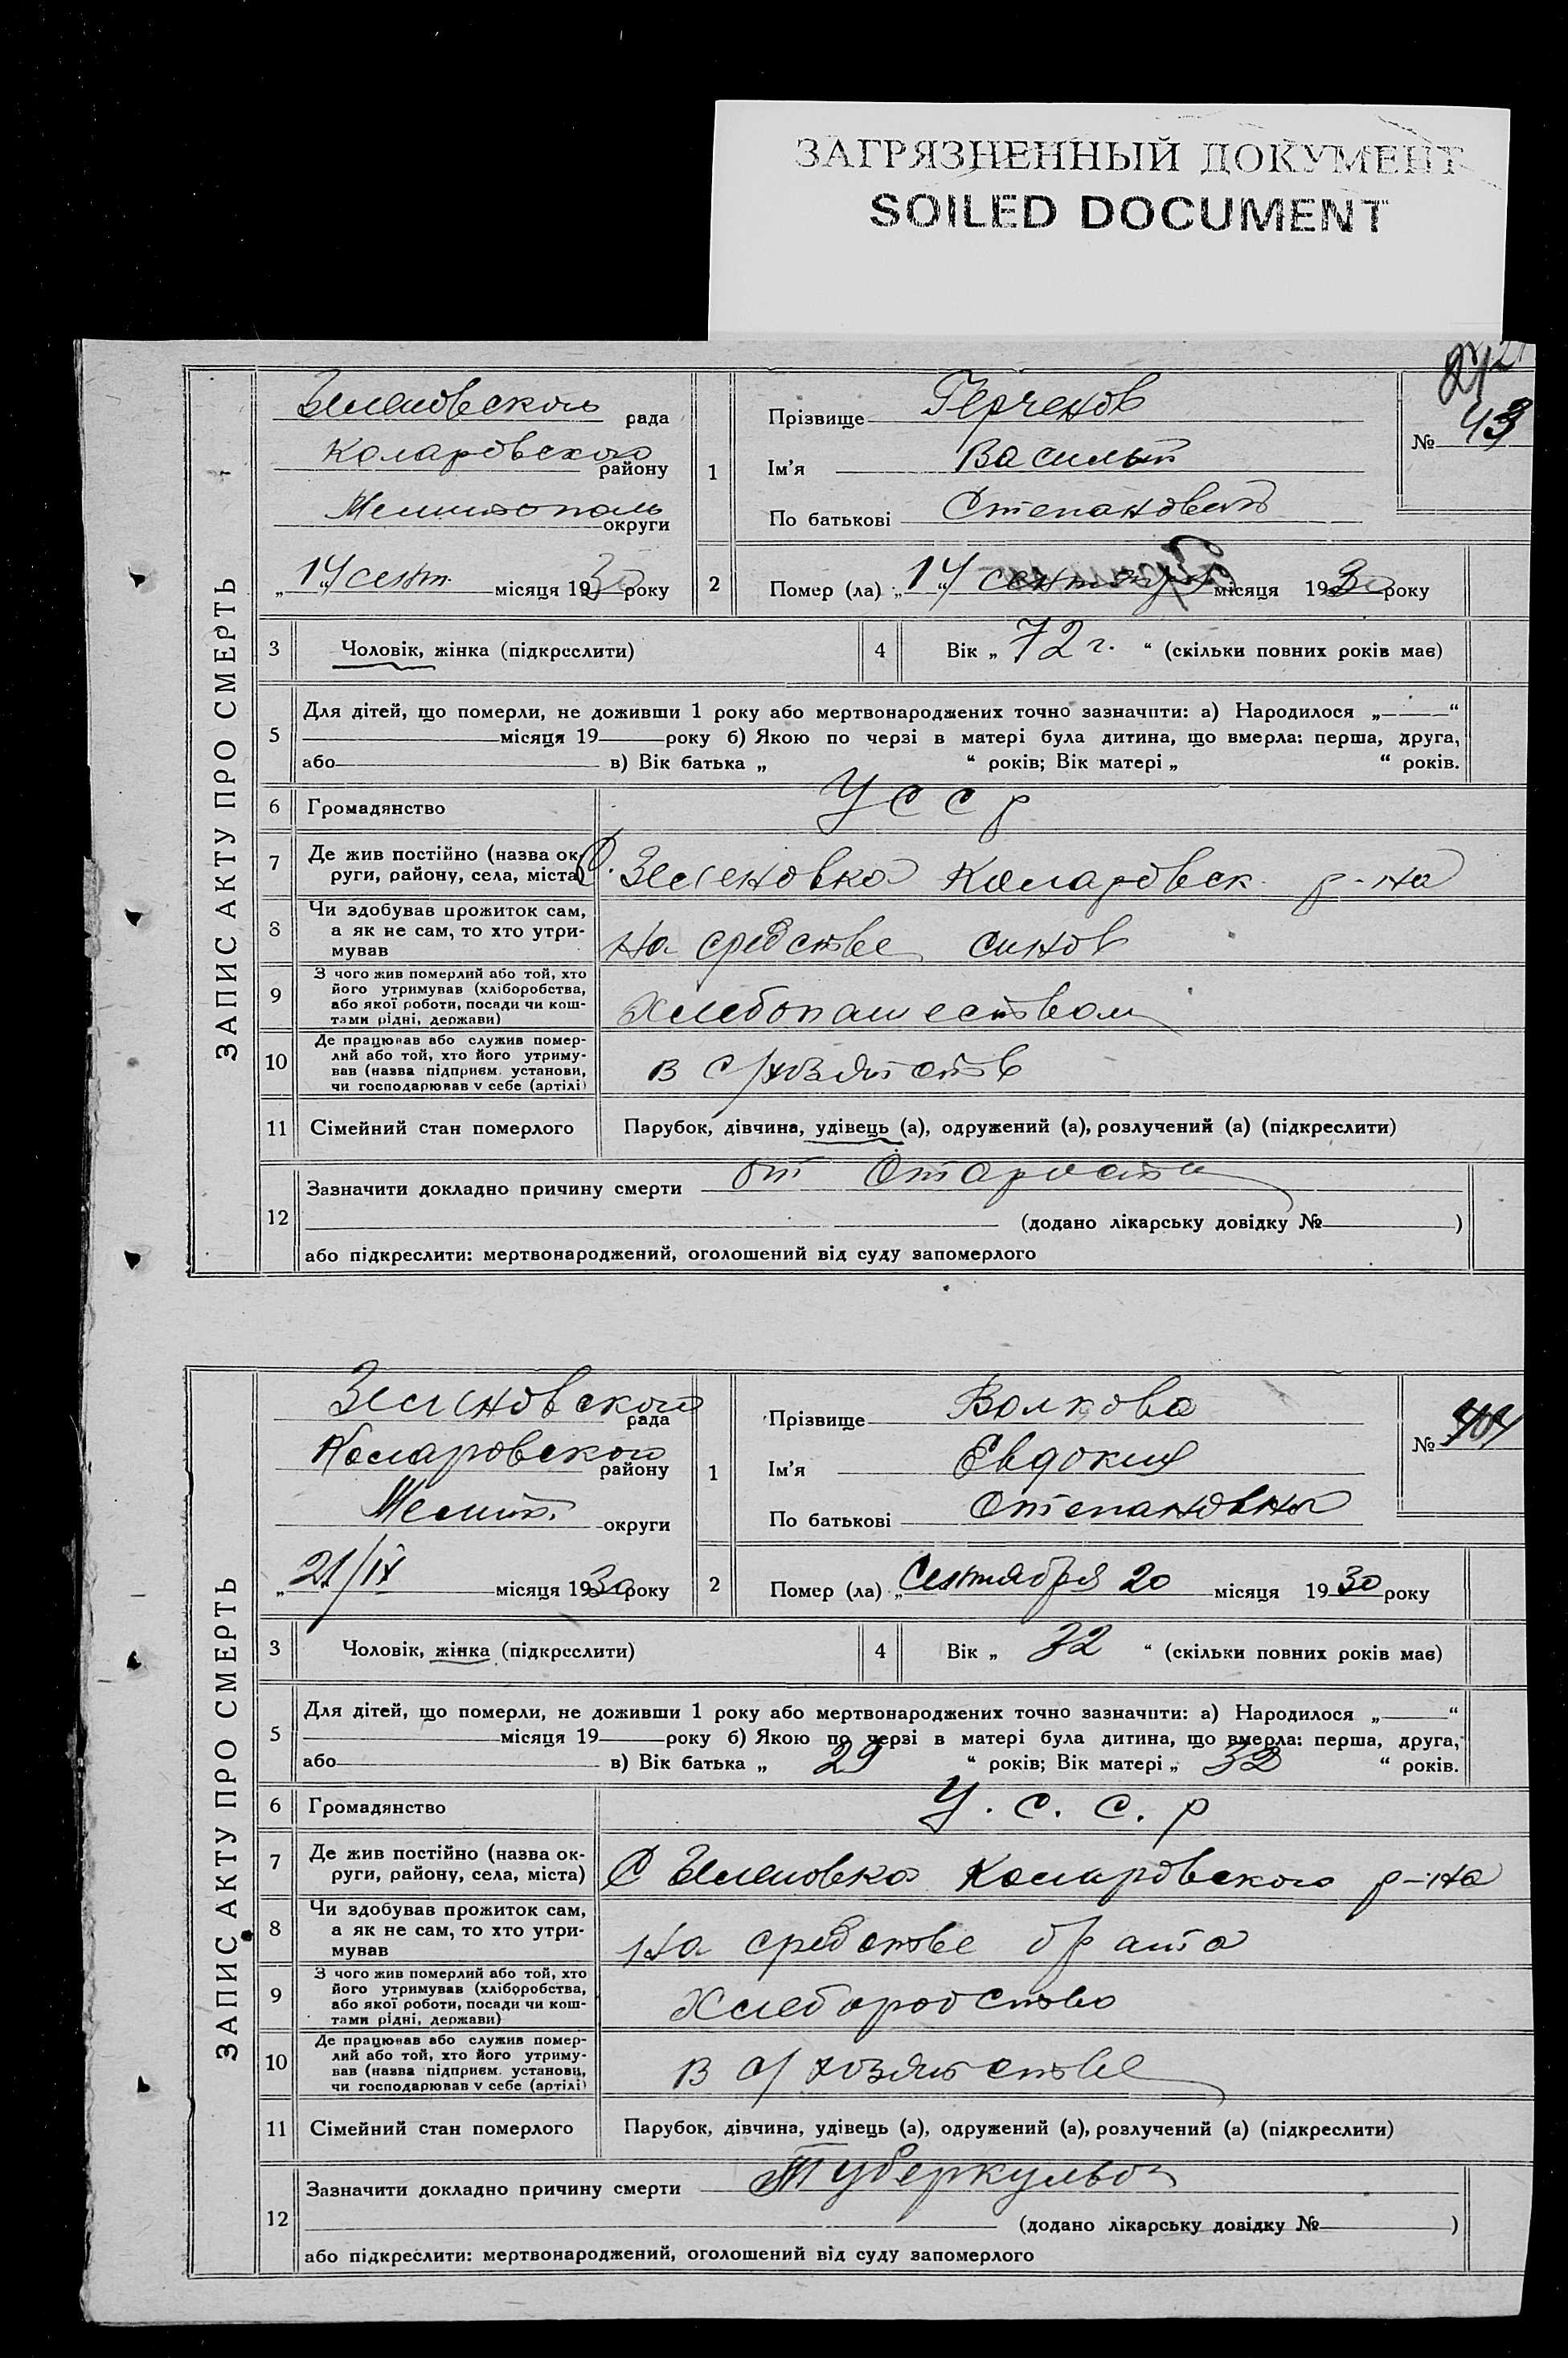 ЗАГРЯЗНЕННЫЙ ДОКУМЕНТ
SOILED DOCUMENT
ЗАПИС АКТУ ПРО СМЕРТЬ
Зеленовской рада
Коларовского району
Мелитополь округи
„17“ сент. місяця 1930 року
1
Прізвище Герченов
Ім’я Василий
По батькові Степанович
№ 43
2 Помер (ла) „17“ сентября місяця 1930 року
3 Чоловік, жінка (підкреслити)
4 Вік „72 г.“ (скільки повних років має)
5 Для дітей, що померли, не доживши 1 року або мертвонароджених точно зазначити: а) Народилося „——“
місяця 19 року б) Якою по черзі в матері була дитина, що вмерла: перша, друга,
або в) Вік батька „ “ років; Вік матері „ “ років.
6 Громадянство УССР
7 Де жив постійно (назва ок-
руги, району, села, міста) С. Зеленовка Коларовск. р-на
8 Чи здобував прожиток сам,
а як не сам, то хто утри-
мував На средстве синов
9 З чого жив померлий або той, хто
його утримував (хліборобства,
або якої роботи, посади чи кош-
тами рідні, держави) Хлебопашеством
10 Де працював або служив помер-
лий або той, хто його утриму-
вав (назва підприєм. установи,
чи господарював у себе (артілі) в с/хозяйств
11 Сімейний стан померлого Парубок, дівчина, удівець (а), одружений (а), розлучений (а) (підкреслити)
12 Зазначити докладно причину смерти от Старости
(додано лікарську довідку № )
або підкреслити: мертвонароджений, оголошений від суду запомерлого
ЗАПИС АКТУ ПРО СМЕРТЬ
Зеленовской рада
Коларовского району
Мелит. округи
„21/IX місяця 1930 року
1
Прізвище Волкова
Ім’я Евдокия
По батькові Степановна
№
2 Помер (ла) „Сентября 20 місяця 1930 року
3 Чоловік, жінка (підкреслити)
4 Вік „32“ (скільки повних років має)
5 Для дітей, що померли, не доживши 1 року або мертвонароджених точно зазначити: а) Народилося „——“
місяця 19 року б) Якою по черзі в матері була дитина, що вмерла: перша, друга,
або в) Вік батька „29“ років; Вік матері „32“ років.
6 Громадянство У.С.С.Р
7 Де жив постійно (назва ок-
руги, району, села, міста) С Зеленовка Коларовского р-на
8 Чи здобував прожиток сам,
а як не сам, то хто утри-
мував На средстве брата
9 З чого жив померлий або той, хто
його утримував (хліборобства,
або якої роботи, посади чи кош-
тами рідні, держави) Хлебородство
10 Де працював або служив помер-
лий або той, хто його утриму-
вав (назва підприєм. установи,
чи господарював у себе (артілі) в с/хозяйстве
11 Сімейний стан померлого Парубок, дівчина, удівець (а), одружений (а), розлучений (а) (підкреслити)
12 Зазначити докладно причину смерти Туберкульоз
(додано лікарську довідку № )
або підкреслити: мертвонароджений, оголошений від суду запомерлого